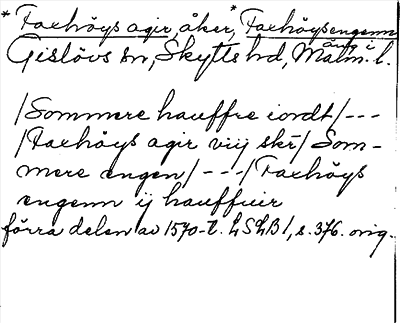 *Faxhöys agir, åker, *Faxhöysengenn
äng i
Gislövs sn, Skytts hd, Malm. l.
/Sommere hauffre iordt/---
/Faxhöys agir viij skr/ Som-
mere engen/---/Faxhöys
engenn ij hauffuir
förra delen av 1570-t. LSLB 1, s. 376. orig.